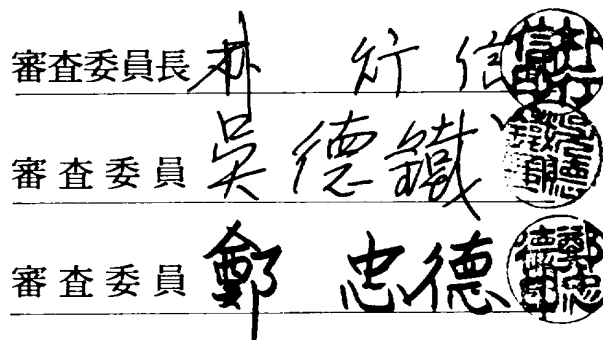 審査委員長 林 行 信
審査委員 吳德鐵
審査委員 鄭 忠德